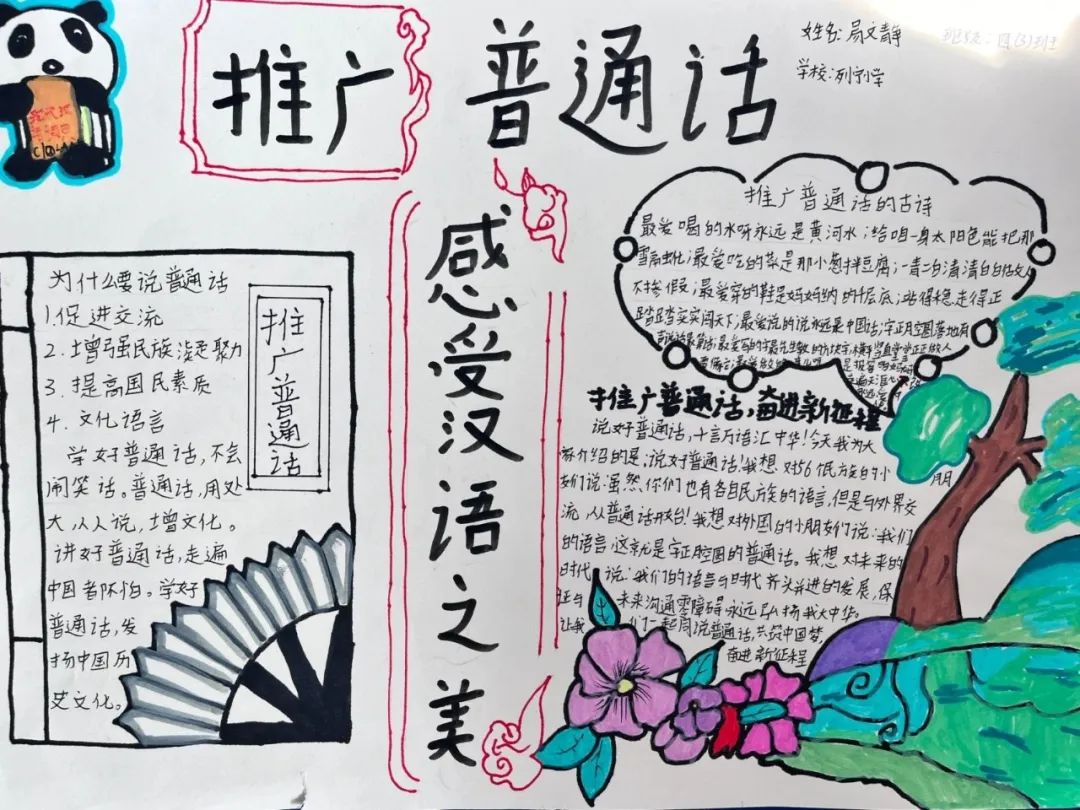 推广
普通话
姓名:易文静
学校:列宁小学
班级:四(3)班
感受汉语之美
为什么要说普通话
1.促进交流
2.增强民族凝聚力
3.提高国民素质
4.文化语言
学好普通话,不会
闹笑话。普通话,用处
大,人人说,增文化。
讲好普通话,走遍
中国都不怕。学好
普通话,发
扬中国历
史文化。
推广普通话
推广普通话的古诗
最爱喝的水呀永远是黄河水;给咱一身太阳色能把那
雪融化;最爱吃的菜是那小葱拌豆腐;一青二白清清白白做人
不掺假;最爱穿的鞋是妈妈纳的千层底;站得稳走得正
踏踏实实闯天下;最爱说的说永远是中国话;字正腔圆落地有
推广普通话,奋进新征程
说好普通话,十言万语汇中华!今天我为大
家介绍的是;说好普通话!我想对56個民族的小 朋
友们说:虽然,你们也有各自民族的语言,但是与外界交
流,从普通话开始!我想对外国的小朋友们说:我们
的语言,这就是字正腔圆的普通话。我想对未来的
时代 说:我们的语言与时代齐头并进的发展,保
证与 未来沟通零障碍永远弘扬我大中华。
让我 们一起同说普通话,共筑中国梦,
奋进新征程